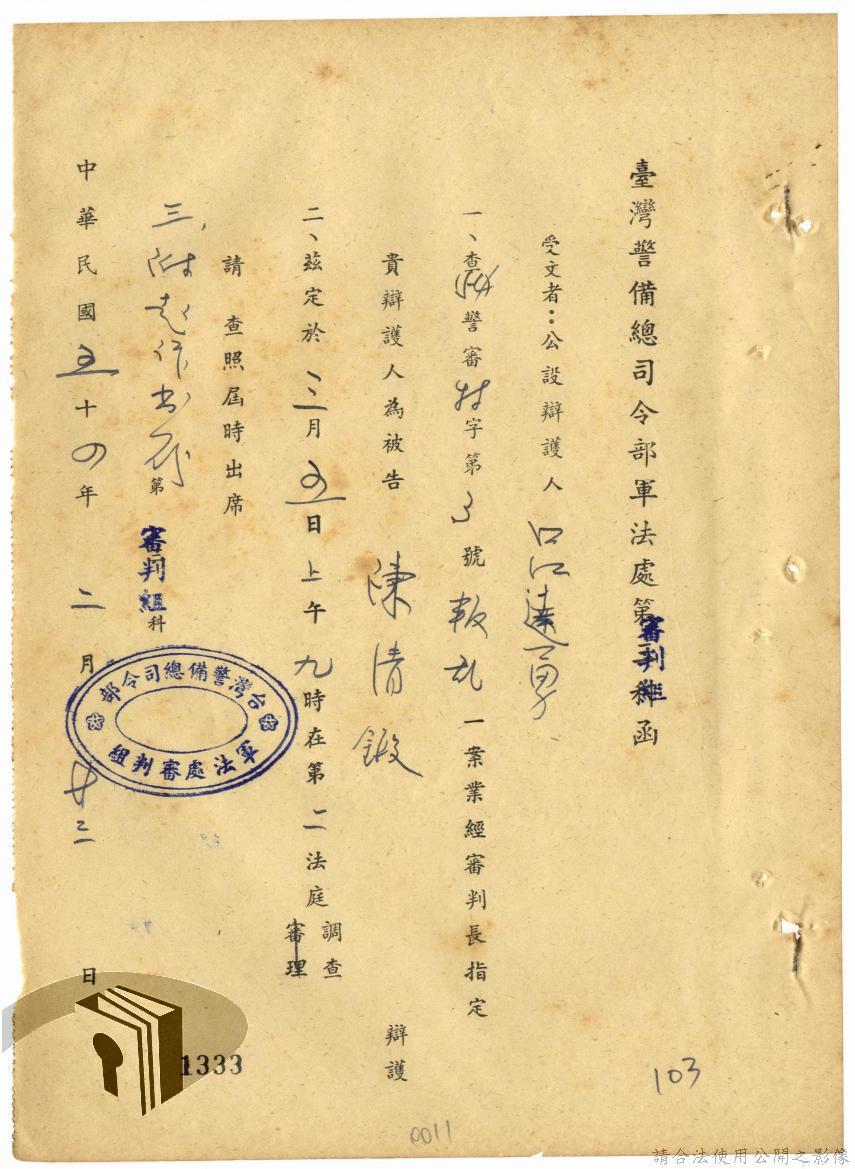 臺灣警備總司令部軍法處第審判組科函
受文者：公設辯護人 江達勇
一、查 警審 字第3號叛乱一案業經審判長指定
貴辯護人為被告 陳清鍛 辯護
二、茲定於三月五日上午九時在第二法庭 調查 審理
請查照屆時出席
三、附起訴書 份
第審判組科
中華民國五十四年二月廿三日
台灣警備總司令部
軍法處審判組
1333
103
0011
請合法使用公開之影像